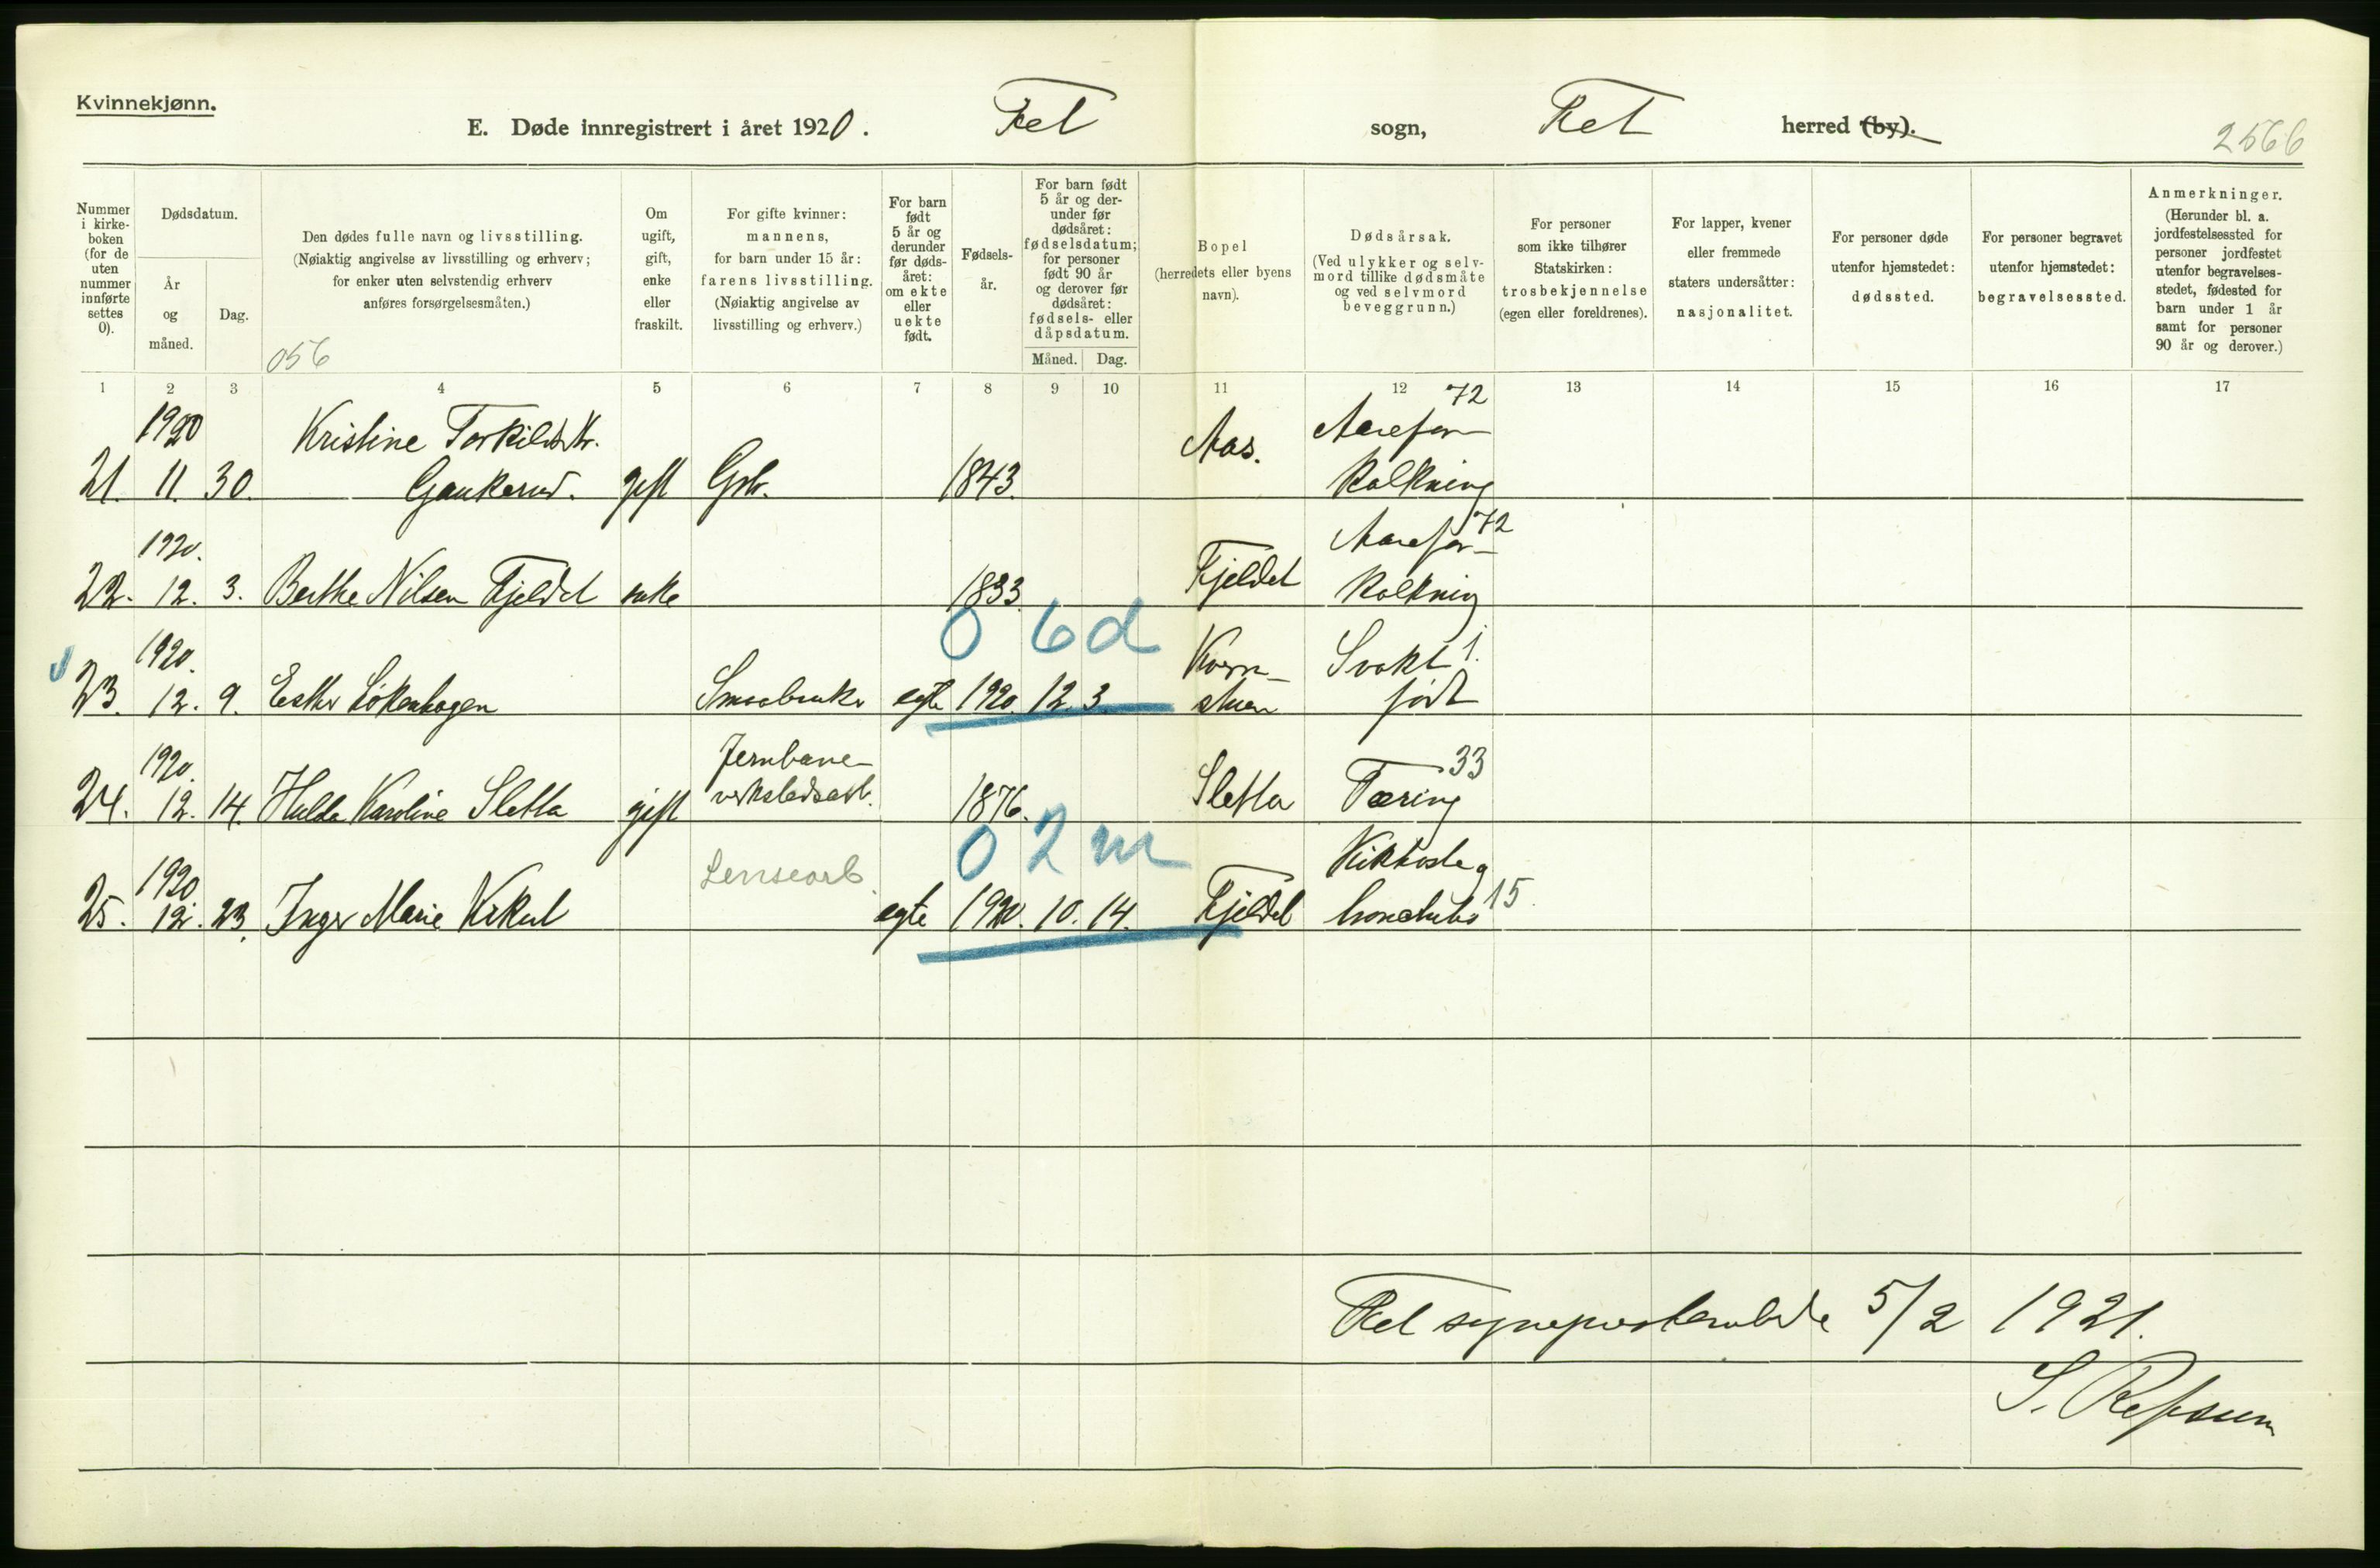 Kvinnekjønn.
E. Døde innregistrert i året 1920. Fet sogn, Fet herred (by).
2566
Nummer i kirke-boken (for de uten nummer innførte settes 0).
Dødsdatum.
År og måned.
Dag.
Den dødes fulle navn og livsstilling.
(Nøiaktig angivelse av livsstilling og erhverv;
for enker uten selvstendig erhverv
anføres forsørgelsesmåten.)
056
Om ugift, gift, enke eller fraskilt.
For gifte kvinner:
mannens,
for barn under 15 år:
farens livsstilling.
(Nøiaktig angivelse av
livsstilling og erhverv.)
For barn født 5 år og derunder før døds-året: om ekte eller uekte født.
Fødsels-år.
For barn født 5 år og der-under før dødsåret: fødselsdatum; for personer født 90 år og derover før dødsåret: fødsels- eller dåpsdatum.
Måned. Dag.
Bopel
(herredets eller byens
navn).
Dødsårsak.
(Ved ulykker og selv-
mord tillike dødsmåte
og ved selvmord
beveggrunn.)
For personer
som ikke tilhører
Statskirken:
trosbekjennelse
(egen eller foreldrenes).
For lapper, kvener
eller fremmede
staters undersåtter:
nasjonalitet.
For personer døde
utenfor hjemstedet:
dødssted.
For personer begravet
utenfor hjemstedet:
begravelsessted.
Anmerkninger.
(Herunder bl. a.
jordfestelsessted for
personer jordfestet
utenfor begravelses-
stedet, fødested for
barn under 1 år
samt for personer
90 år og derover.)
1 2 3 4 5 6 7 8 9 10 11 12 13 14 15 16 17
1920 Kristine Torkildsdtr. Aas. Aarefor- 72
21. 11. 30. Gaukerud. gift Gbr. 1843. kalkning
1920. Fjeldet Aarefor- 72
22. 12. 3. Berthe Nilsen Fjeldet enke 1833. kalkning
0 6 d
1920. Kvern- Svakt 1.
23. 12. 9. Esther Løkenhagen Smaabruker egte 1920. 12. 3. stuen født
1920. Jernbane- 33
24. 12. 14. Hulda Karoline Sletta gift verkstedsarb. 1876. Sletta Tæring
0 2 m
1920 Lensearb. Kikhoste g
25. 12. 23. Inger Marie Kirkul egte 1920. 10. 14. Fjeldet 15
Fet sogneprestembede 5/2 1921.
S. Refsum